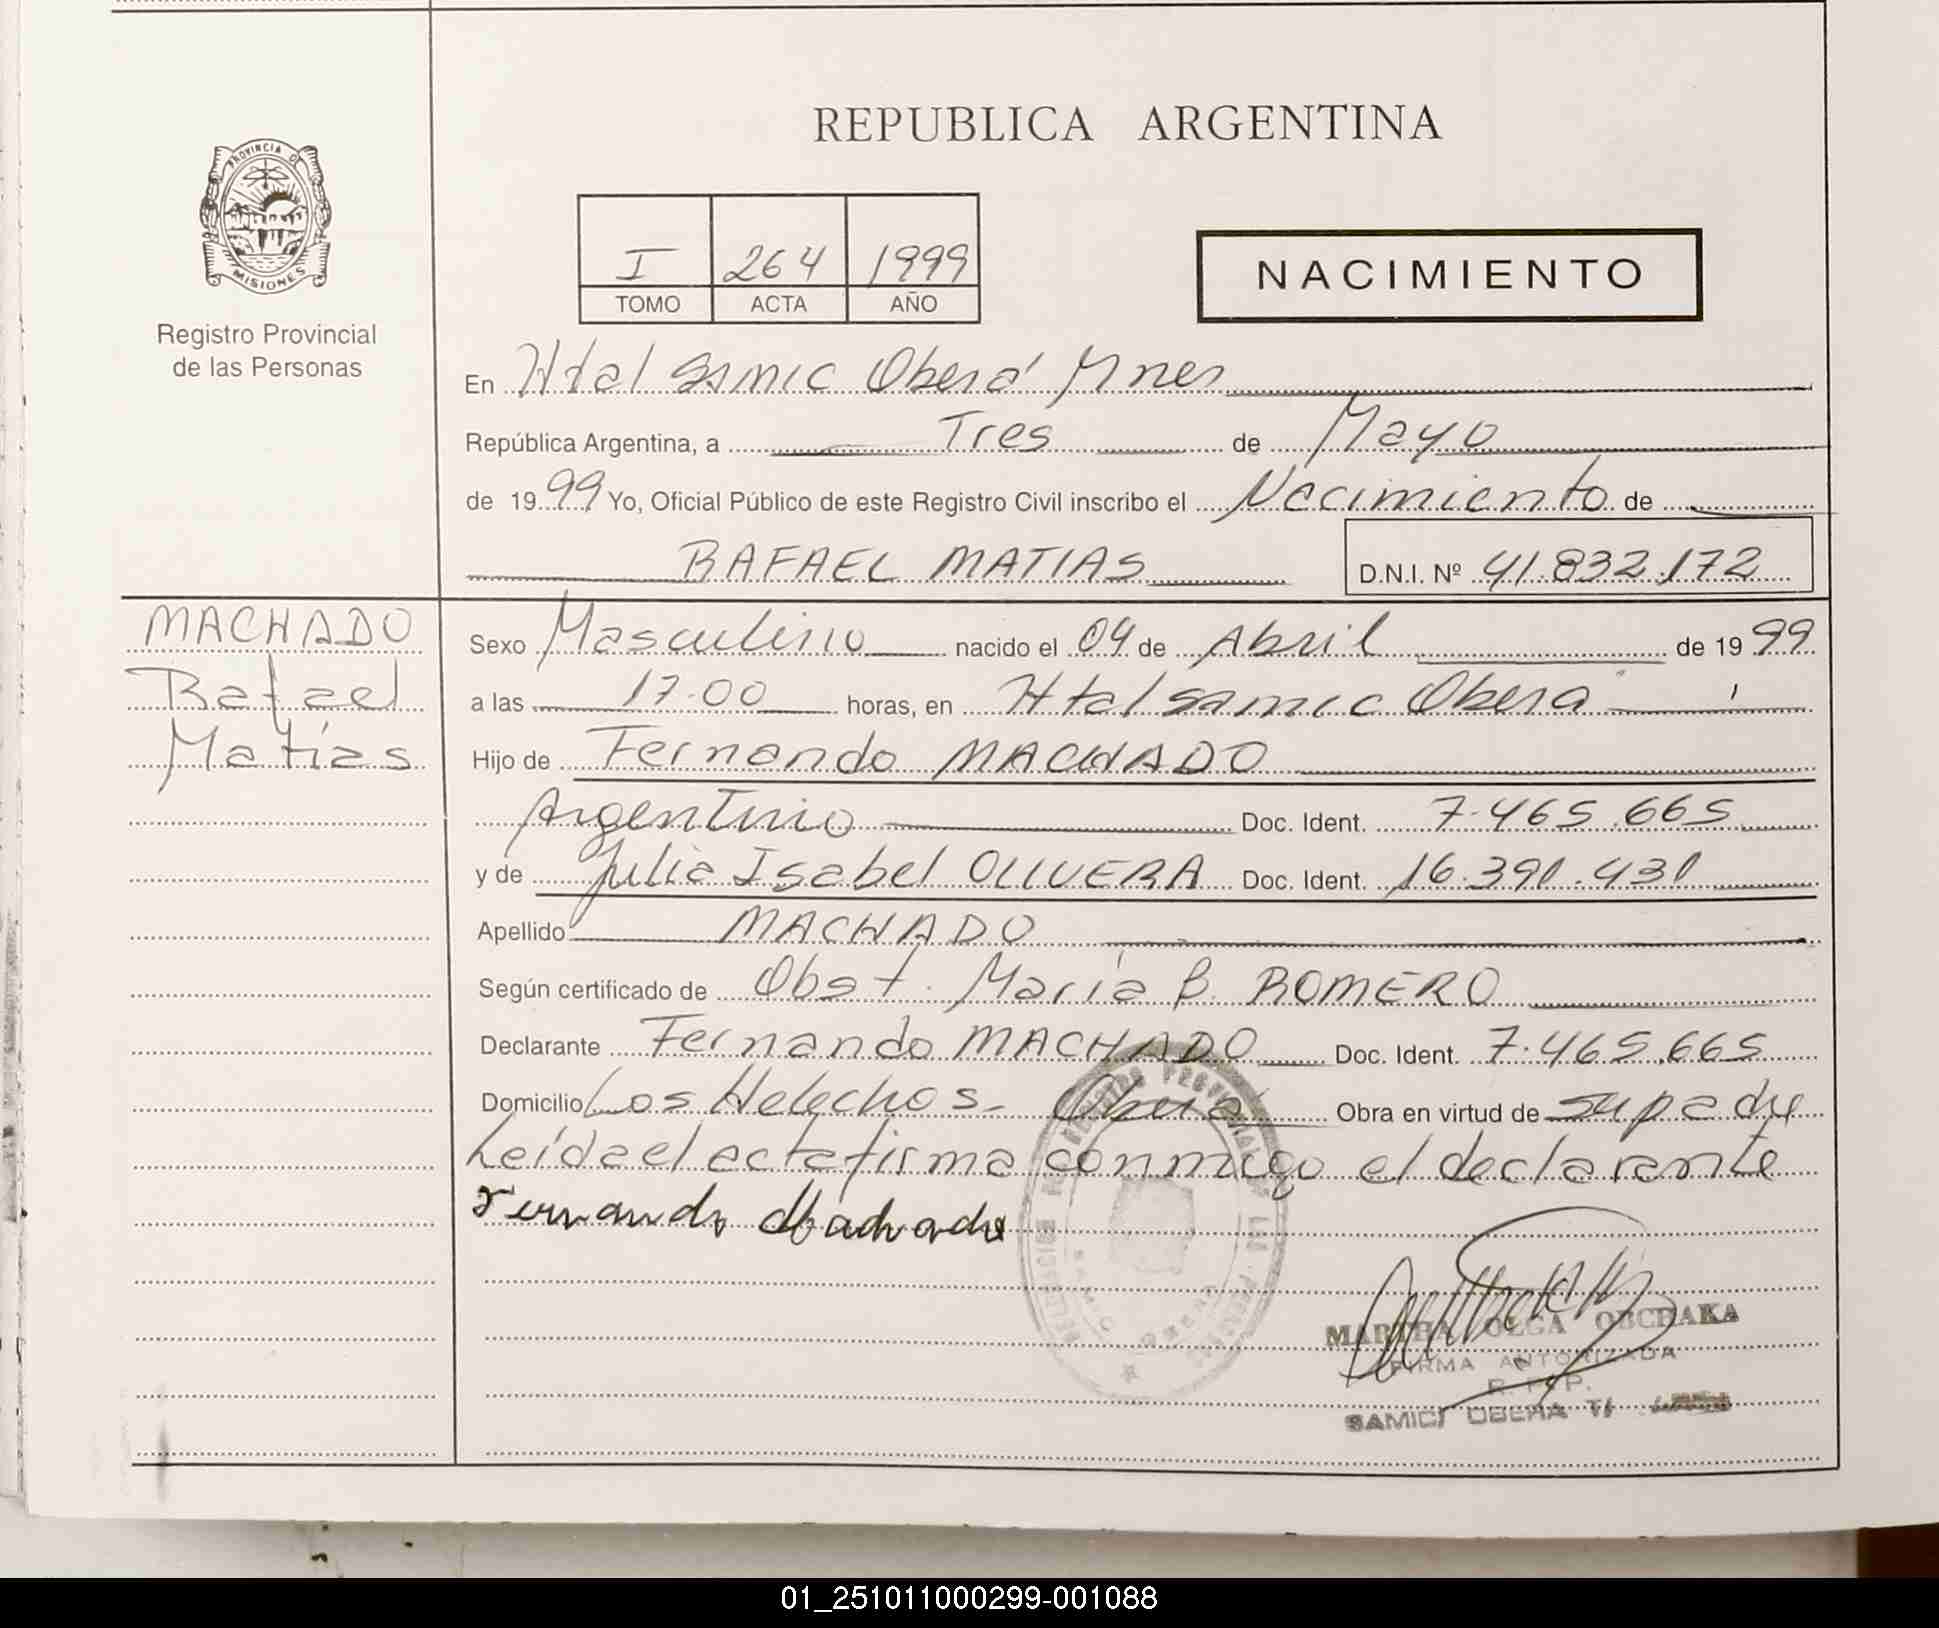 REPUBLICA ARGENTINA
PROVINCIA D
MISIONES
Registro Provincial
de las Personas
I 264 1999
TOMO ACTA AÑO
NACIMIENTO
En Htal Samic Oberá Mnes
República Argentina, a Tres de Mayo
de 1999 Yo, Oficial Público de este Registro Civil inscribo el Nacimiento de
RAFAEL MATIAS D.N.I. Nº 41.832.172
MACHADO
Rafael
Matías
Sexo Masculino nacido el 04 de Abril de 1999
a las 17.00 horas, en Htal Samic Obera
Hijo de Fernando MACHADO
Argentino Doc. Ident. 7.465.665
y de Julia Isabel OLIVERA Doc. Ident. 16.391.431
Apellido MACHADO
Según certificado de Obst. María B. ROMERO
Declarante Fernando MACHADO Doc. Ident. 7.465.665
Domicilio Los Helechos - Oberá Obra en virtud de su padre
Leída el acta firma conmigo el declarante
Fernando Machado
MARTHA OLGA OBCHAKA
FIRMA AUTORIZADA
R.P.P.
SAMIC OBERA
01_251011000299-001088